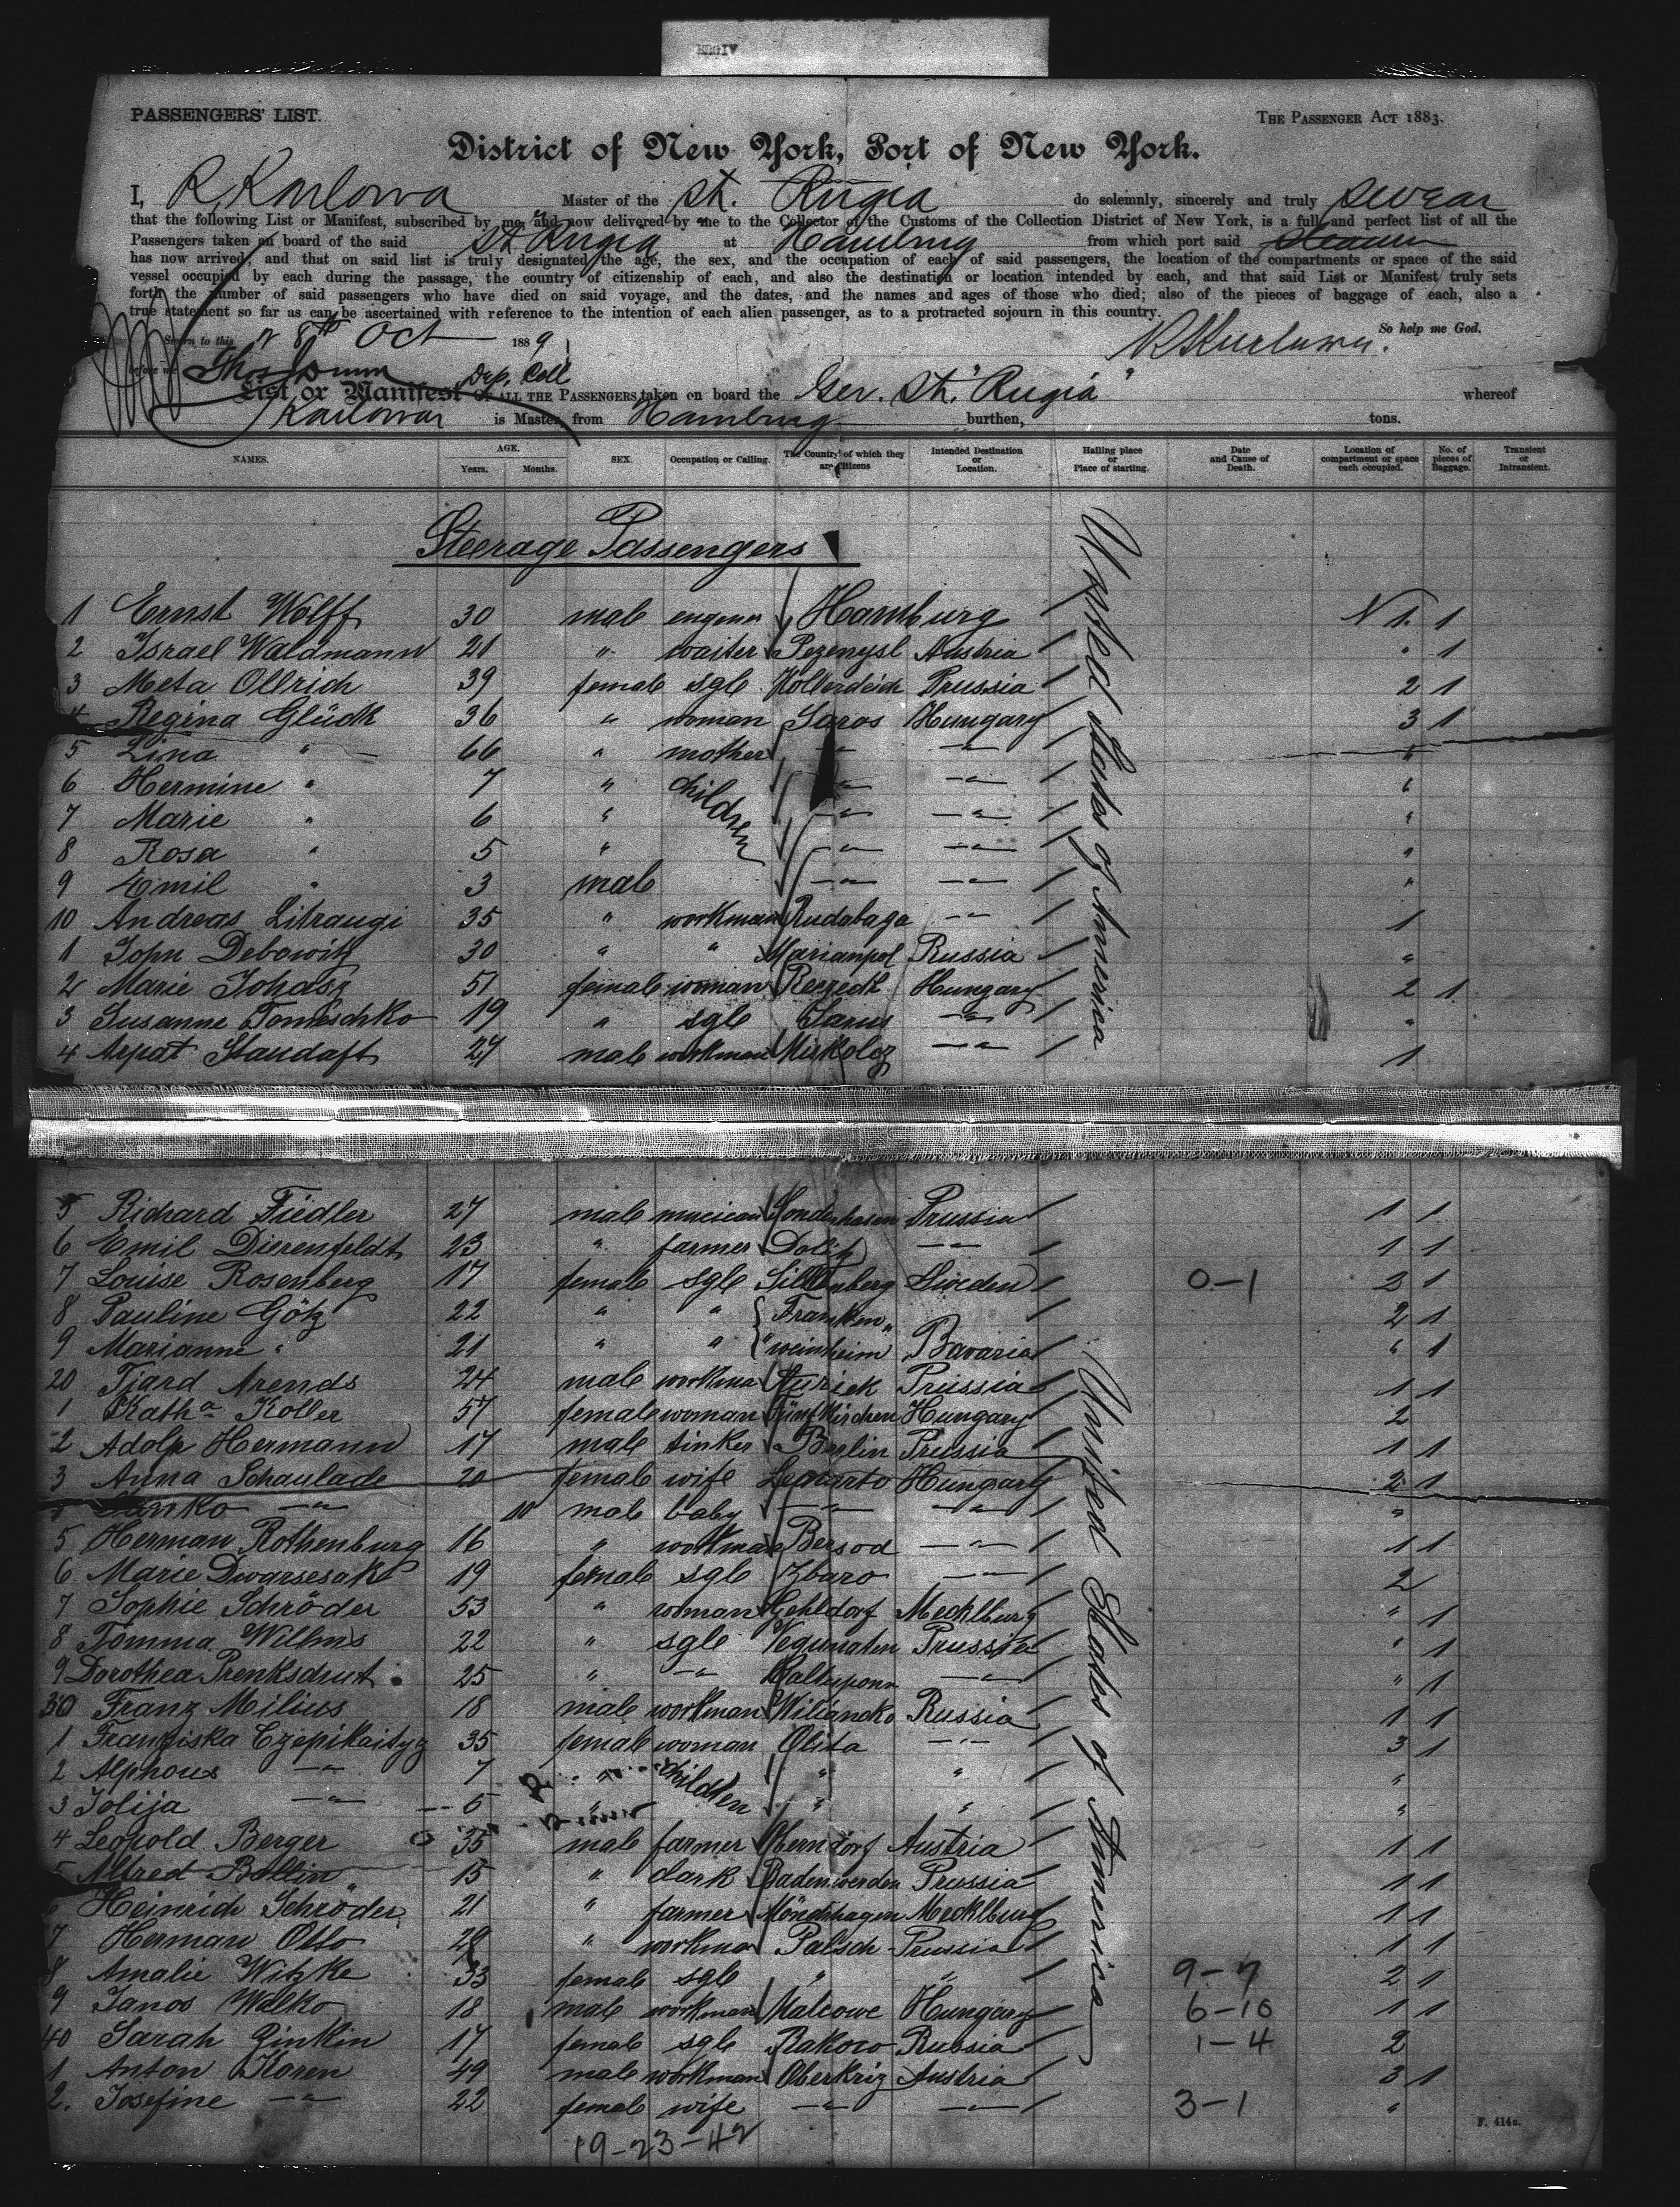 PASSENGERS' LIST.
THE PASSENGER ACT 1883.
District of New York, Port of New York.
I, R. Karlowa Master of the St. Rugia do solemnly, sincerely and truly swear
that the following List or Manifest, subscribed by me, and now delivered by me to the Collector of the Customs of the Collection District of New York, is a full and perfect list of all the
Passengers taken on board of the said St Rugia at Hamburg from which port said steamer
has now arrived, and that on said list is truly designated the age, the sex, and the occupation of each of said passengers, the location of the compartments or space of the said
vessel occupied by each during the passage, the country of citizenship of each, and also the destination or location intended by each, and that said List or Manifest truly sets
forth the number of said passengers who have died on said voyage, and the dates, and the names and ages of those who died; also of the pieces of baggage of each, also a
true statement so far as can be ascertained with reference to the intention of each alien passenger, as to a protracted sojourn in this country.
So help me God.
Sworn to this 8th Oct 1889
R Karlowa.
before me Dep. Coll
List or Manifest OF ALL THE PASSENGERS taken on board the Ger. St. "Rugia" whereof
Karlowa is Master, from Hamburg burthen, tons.
NAMES. AGE. Years. Months. SEX. Occupation or Calling. The Country of which they are Citizens Intended Destination or Location. Hailing place or Place of starting. Date and Cause of Death. Location of compartment or space each occupied. No. of pieces of Baggage. Transient or Intransient.
Steerage Passengers
United States of America
1 Ernst Wolff 30 male Hamburg N 1. 1
2 Israel Waldmann 21 " waiter Pezemysl Austria " 1
3 Meta Ollrich 39 female sgle Prussia 2 1
4 Regina Glück 36 " woman Saros Hungary 3 1
5 Lina " 66 " mother " " "
6 Hermine " 7 " children " " "
7 Marie " 6 " " " "
8 Rosa " 5 " " " "
9 Emil " 3 male " " "
10 Andreas Litraugi 35 " workman Rudabaga " 1
1 John Debowitz 30 " " Marianpol Russia "
2 Marie Johasz 51 female woman Hungary 2 1
3 Susanne Tomeschko 19 " sgle Sarus " "
4 Arpat Standaft 27 male workman Miskolcz " 1
5 Richard Fiedler 27 male musician Sonderhasen Prussia 1 1
6 Emil Dierenfeldt 23 " farmer Dolitz " 1 1
7 Louise Rosenberg 17 female sgle Silkenberg Sweden 0-1 2 1
8 Pauline Götz 22 " " Franken" 2 1
9 Marianne " 21 " " "weinheim Bavaria " 1
20 Tjard Arends 24 male workman Aurick Prussia 1 1
1 Katha Koller 57 female woman Fünfkirchen Hungary 2
2 Adolp Hermann 17 male tinker Berlin Prussia 1 1
3 Anna Schaulade 20 female wife Hungary 2 1
Janko " 10 male baby " " "
5 Herman Rothenburg 16 " workman Bersod " 1 1
6 Marie Dwarsesak 19 female sgle Zbaro " 2
7 Sophie Schröder 53 " woman Gehldorf Mecklburg " 1
8 Tomma Willms 22 " sgle Prussia " 1
9 Dorothea Prenksdrut 25 " " " " 1
30 Franz Milius 18 male workman Wiliancko Russia 1 1
1 Franziska Czepikaityz 35 female woman Olita " 3 1
2 Alphons " 7 " children " " "
3 Jolija " 5 " " " "
4 Leopold Berger 35 male farmer Oberndorf Austria 1 1
5 Alfred Bollin 15 " clark Badenwerden Prussia 1 1
6 Heinrich Schröder 21 " farmer Mönchhagen Mecklburg 1 1
7 Herman Otto 28 " workman Palsch Prussia 1 1
8 Amalie Witzke 33 female sgle " " 9-7 2 1
9 Janos Walko 18 male workman Malcowe Hungary 6-10 1 1
40 Sarah Zinkin 17 female sgle Rakow Russia 1-4 2
1 Anton Koren 49 male workman Oberkriz Austria 3 1
2. Josefine " 22 female wife " " 3-1 "
United States of America
19-23-42
F. 414a.